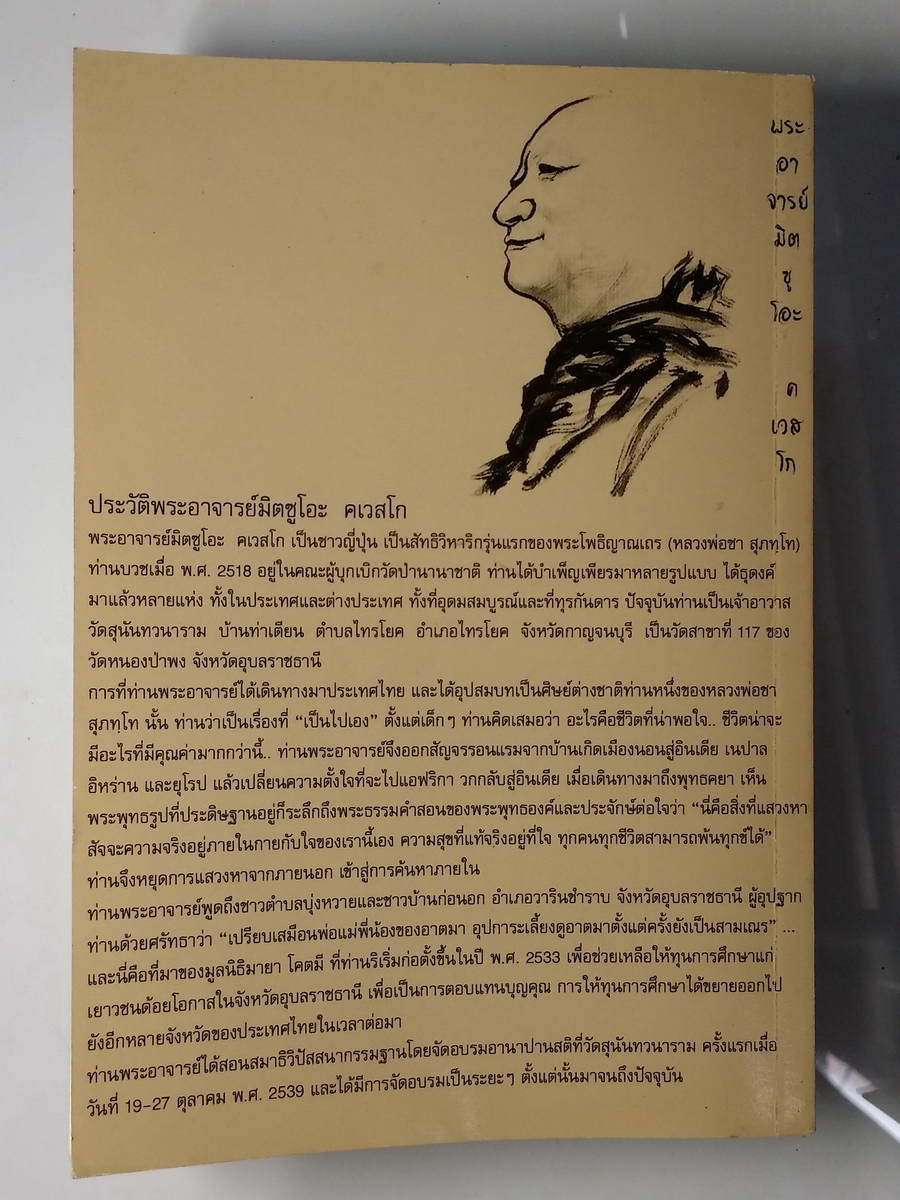 พระ
อา
จารย์
มิต
ซู
โอะ
ค
เวส
โก
ประวัติพระอาจารย์มิตซูโอะ คเวสโก
พระอาจารย์มิตซูโอะ คเวสโก เป็นชาวญี่ปุ่น เป็นสัทธิวิหาริกรุ่นแรกของพระโพธิญาณเถร (หลวงพ่อชา สุภทฺโท)
ท่านบวชเมื่อ พ.ศ. 2518 อยู่ในคณะผู้บุกเบิกวัดป่านานาชาติ ท่านได้บำเพ็ญเพียรมาหลายรูปแบบ ได้ธุดงค์
มาแล้วหลายแห่ง ทั้งในประเทศและต่างประเทศ ทั้งที่อุดมสมบูรณ์และที่ทุรกันดาร ปัจจุบันท่านเป็นเจ้าอาวาส
วัดสุนันทวนาราม บ้านท่าเตียน ตำบลไทรโยค อำเภอไทรโยค จังหวัดกาญจนบุรี เป็นวัดสาขาที่ 117 ของ
วัดหนองป่าพง จังหวัดอุบลราชธานี
การที่ท่านพระอาจารย์ได้เดินทางมาประเทศไทย และได้อุปสมบทเป็นศิษย์ต่างชาติท่านหนึ่งของหลวงพ่อชา
สุภทฺโท นั้น ท่านว่าเป็นเรื่องที่ “เป็นไปเอง” ตั้งแต่เด็กๆ ท่านคิดเสมอว่า อะไรคือชีวิตที่น่าพอใจ.. ชีวิตน่าจะ
มีอะไรที่มีคุณค่ามากกว่านี้.. ท่านพระอาจารย์จึงออกสัญจรรอนแรมจากบ้านเกิดเมืองนอนสู่อินเดีย เนปาล
อิหร่าน และยุโรป แล้วเปลี่ยนความตั้งใจที่จะไปแอฟริกา วกกลับสู่อินเดีย เมื่อเดินทางมาถึงพุทธคยา เห็น
พระพุทธรูปที่ประดิษฐานอยู่ก็ระลึกถึงพระธรรมคำสอนของพระพุทธองค์และประจักษ์ต่อใจว่า “นี่คือสิ่งที่แสวงหา
สัจจะความจริงอยู่ภายในกายกับใจของเรานี้เอง ความสุขที่แท้จริงอยู่ที่ใจ ทุกคนทุกชีวิตสามารถพ้นทุกข์ได้”
ท่านจึงหยุดการแสวงหาจากภายนอก เข้าสู่การค้นหาภายใน
ท่านพระอาจารย์พูดถึงชาวตำบลบุ่งหวายและชาวบ้านก่อนอก อำเภอวารินชำราบ จังหวัดอุบลราชธานี ผู้อุปฐาก
ท่านด้วยศรัทธาว่า “เปรียบเสมือนพ่อแม่พี่น้องของอาตมา อุปการะเลี้ยงดูอาตมาตั้งแต่ครั้งยังเป็นสามเณร” ...
และนี่คือที่มาของมูลนิธิมายา โคตมี ที่ท่านริเริ่มก่อตั้งขึ้นในปี พ.ศ. 2533 เพื่อช่วยเหลือให้ทุนการศึกษาแก่
เยาวชนด้อยโอกาสในจังหวัดอุบลราชธานี เพื่อเป็นการตอบแทนบุญคุณ การให้ทุนการศึกษาได้ขยายออกไป
ยังอีกหลายจังหวัดของประเทศไทยในเวลาต่อมา
ท่านพระอาจารย์ได้สอนสมาธิวิปัสสนากรรมฐานโดยจัดอบรมอานาปานสติที่วัดสุนันทวนาราม ครั้งแรกเมื่อ
วันที่ 19-27 ตุลาคม พ.ศ. 2539 และได้มีการจัดอบรมเป็นระยะๆ ตั้งแต่นั้นมาจนถึงปัจจุบัน